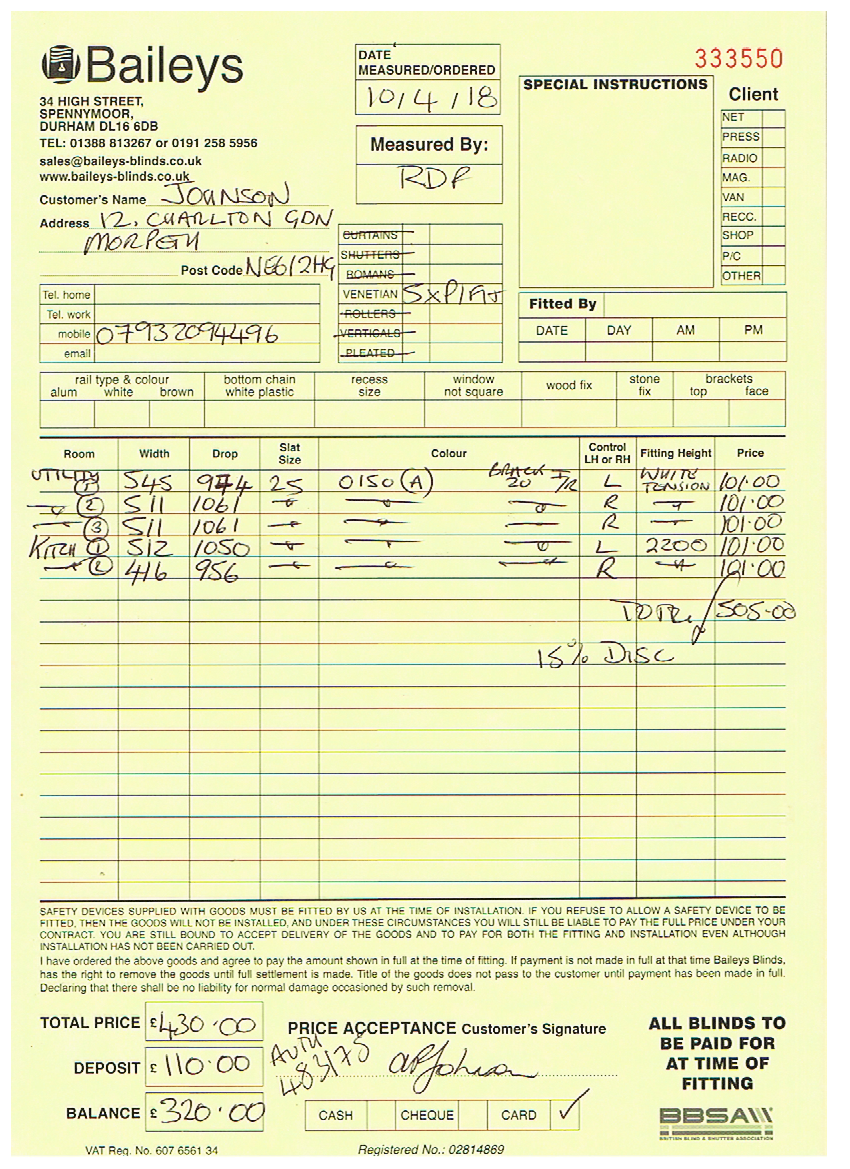 Baileys
34 HIGH STREET,
SPENNYMOOR,
DURHAM DL16 6DB
TEL: 01388 813267 or 0191 258 5956
sales@baileys-blinds.co.uk
www.baileys-blinds.co.uk
DATE
MEASURED/ORDERED
10/4/18
Measured By:
RDP
333550
SPECIAL INSTRUCTIONS
Client
NET
PRESS
RADIO
MAG.
VAN
RECC.
SHOP
P/C
OTHER
Customer's Name JOHNSON
Address 12, CHARLTON GDN
MORPETH
Post Code NE61 2HG
Tel. home
Tel. work
mobile 07932094496
email
CURTAINS
SHUTTERS
ROMANS
VENETIAN 5
ROLLERS
VERTICALS
PLEATED
Fitted By
DATE DAY AM PM
rail type & colour bottom chain recess window wood fix stone brackets
alum white brown white plastic size not square fix top face
Room Width Drop Slat Size Colour Control LH or RH Fitting Height Price
UTILITY 1 545 974 25 0150 (A) 20 L WHITE TENSION 101.00
2 511 1061 R 101.00
3 511 1061 R 101.00
KITCH 1 512 1050 L 2200 101.00
2 416 956 R 101.00
TOTAL 505-00
15% DISC
SAFETY DEVICES SUPPLIED WITH GOODS MUST BE FITTED BY US AT THE TIME OF INSTALLATION. IF YOU REFUSE TO ALLOW A SAFETY DEVICE TO BE
FITTED, THEN THE GOODS WILL NOT BE INSTALLED, AND UNDER THESE CIRCUMSTANCES YOU WILL STILL BE LIABLE TO PAY THE FULL PRICE UNDER YOUR
CONTRACT. YOU ARE STILL BOUND TO ACCEPT DELIVERY OF THE GOODS AND TO PAY FOR BOTH THE FITTING AND INSTALLATION EVEN ALTHOUGH
INSTALLATION HAS NOT BEEN CARRIED OUT.
I have ordered the above goods and agree to pay the amount shown in full at the time of fitting. If payment is not made in full at that time Baileys Blinds,
has the right to remove the goods until full settlement is made. Title of the goods does not pass to the customer until payment has been made in full.
Declaring that there shall be no liability for normal damage occasioned by such removal.
TOTAL PRICE £430.00
DEPOSIT £110.00
BALANCE £320.00
PRICE ACCEPTANCE Customer's Signature
AUTH
483175
CASH CHEQUE CARD ✓
ALL BLINDS TO
BE PAID FOR
AT TIME OF
FITTING
BBSA
BRITISH BLIND & SHUTTER ASSOCIATION
VAT Reg. No. 607 6561 34
Registered No.: 02814869